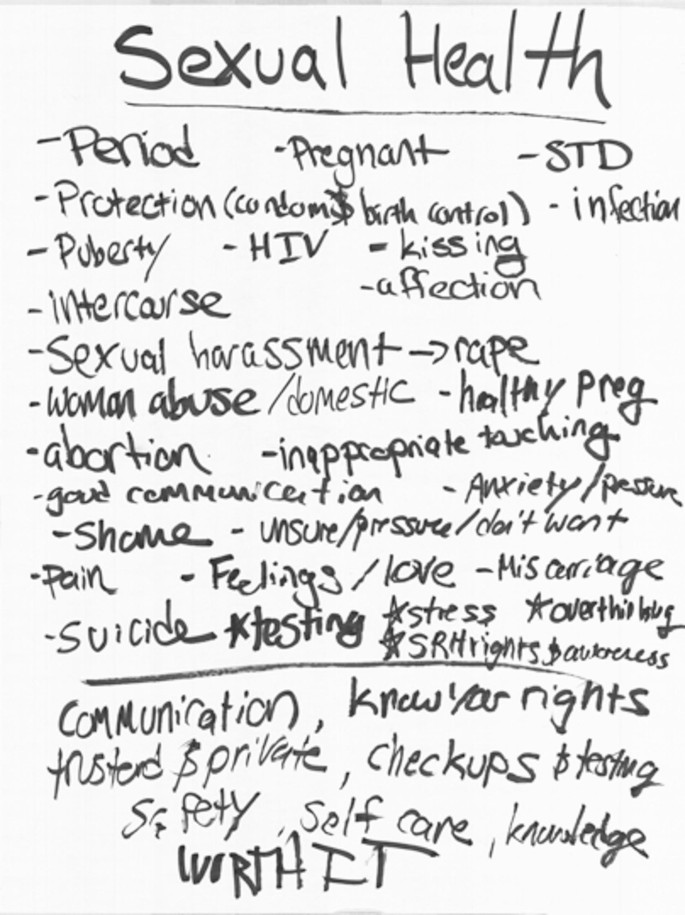 Sexual Health
-Period -Pregnant -STD
-Protection (condoms & birth control) -infection
-Puberty -HIV -kissing
-affection
-intercourse
-Sexual harassment -> rape
-woman abuse / domestic -healthy preg
-abortion -inappropriate touching
-good communication -Anxiety/
-Shame - unsure/pressure/don't want
-Pain -Feelings / love -Miscarriage
-Suicide *testing *stress *overthinking
*SRH rights & awareness
Communication, know your rights
& private, checkups & testing
Safety, Self care, knowledge
WORTH IT